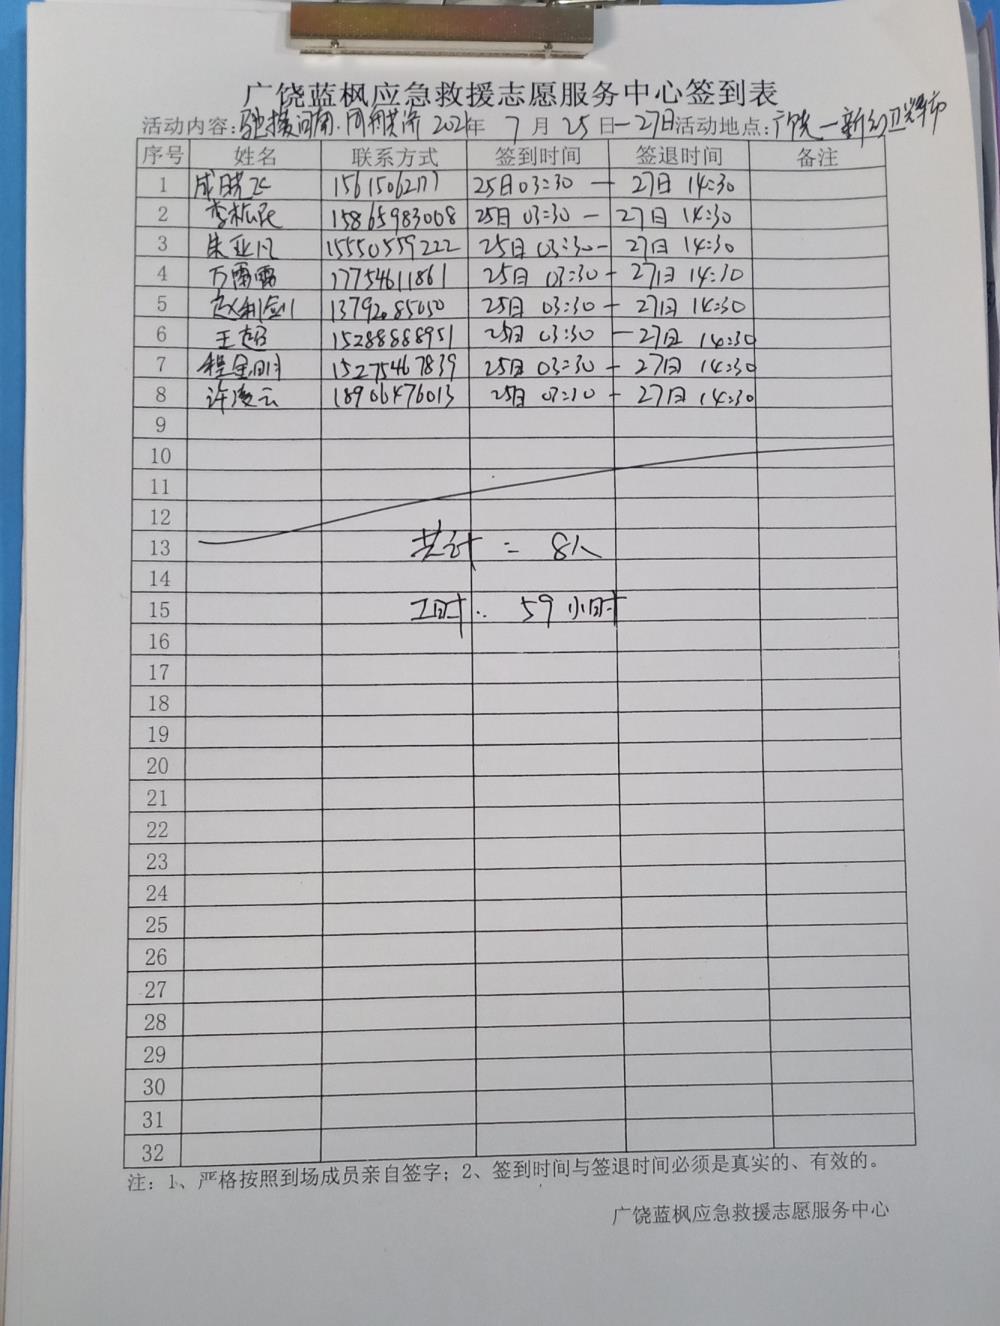 广饶蓝枫应急救援志愿服务中心签到表
活动内容:驰援河南.同舟共济 2021年 7月25日—27日活动地点:广饶—新乡卫辉市
序号 姓名 联系方式 签到时间 签退时间 备注
1 成晓飞 15615062177 25日03:30 — 27日 14:30
2 李松民 15865983008 25日03:30 — 27日 14:30
3 朱亚凡 15550559222 25日03:30 - 27日 14:30
4 万雷雷 17754611861 25日 03:30 - 27日 14:30
5 赵利剑 13792085050 25日 03:30 - 27日 14:30
6 王超 15288888951 25日 03:30 - 27日 14:30
7 程全明 15275467839 25日 03:30 - 27日 14:30
8 许凌云 18906476013 25日 03:30 - 27日 14:30
9
10
11
12
13 共计 = 8人
14
15 工时: 59小时
16
17
18
19
20
21
22
23
24
25
26
27
28
29
30
31
32
注：1、严格按照到场成员亲自签字；2、签到时间与签退时间必须是真实的、有效的。
广饶蓝枫应急救援志愿服务中心